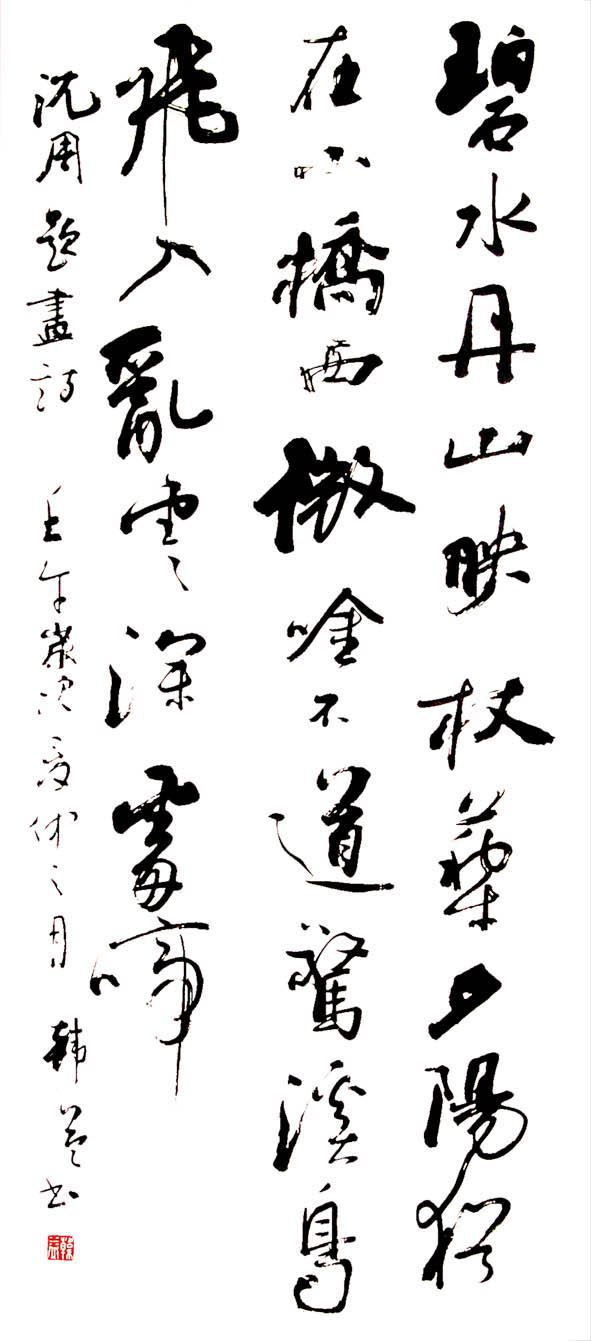 碧水丹山映杖藜夕陽猶
在小橋西微唫不道驚溪鳥
飛入亂雲深處啼
沈周題畫詩 壬午歲次夏仲之月 韓書